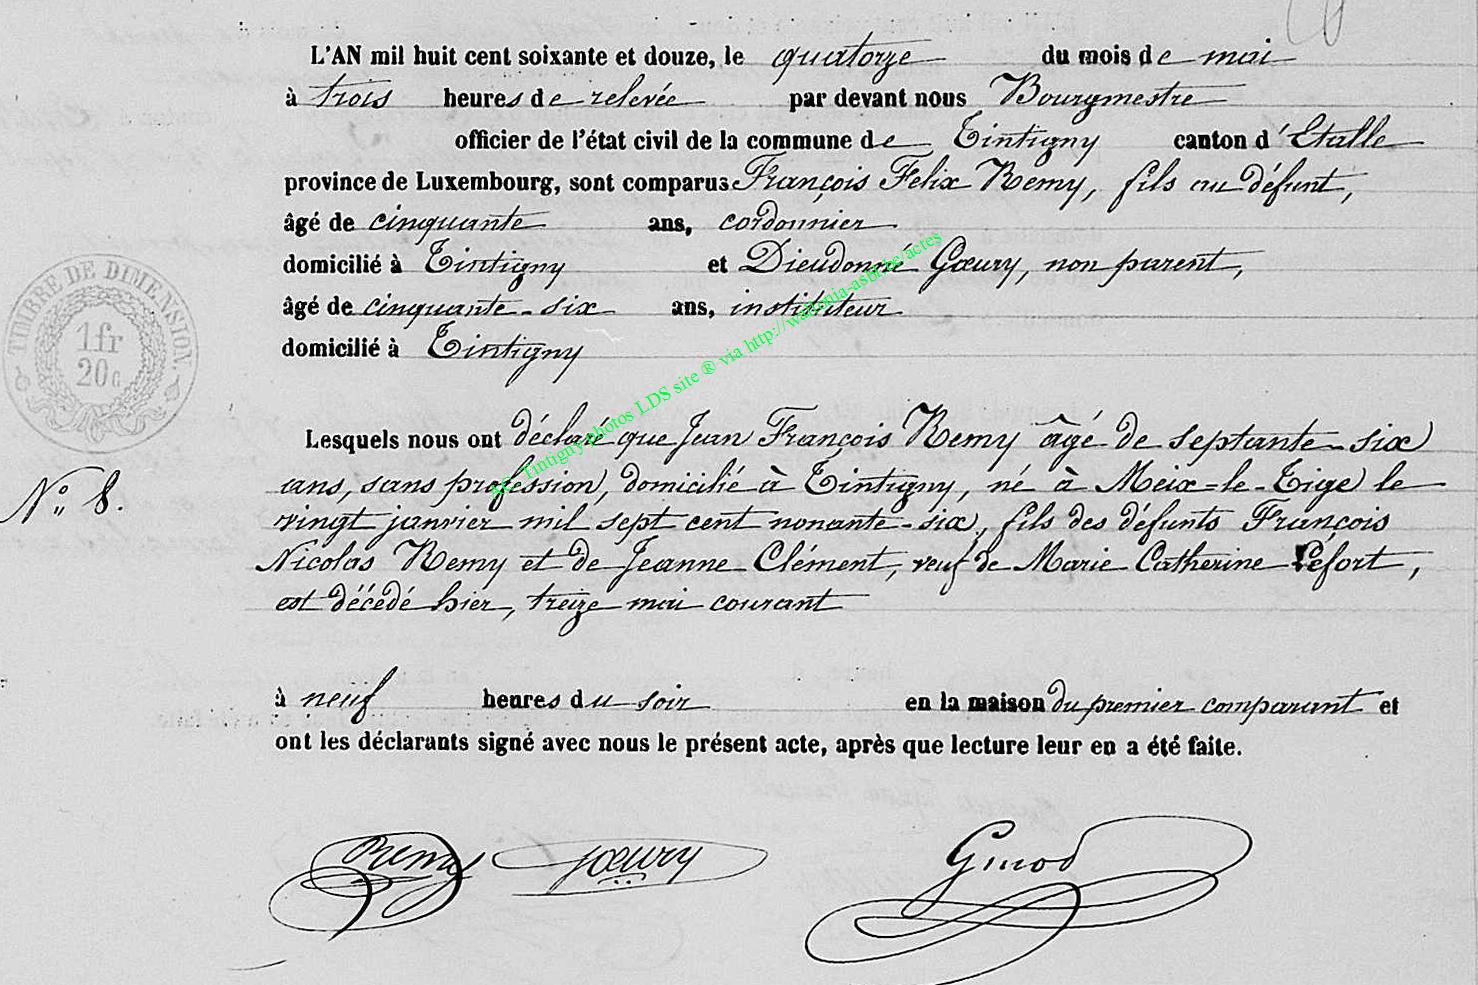 L'AN mil huit cent soixante et douze, le quatorze du mois de mai
à trois heures de relevée par devant nous Bourgmestre
officier de l'état civil de la commune de Tintigny canton d'Etalle
province de Luxembourg, sont comparus François Felix Remy, fils au défunt,
âgé de cinquante ans, cordonnier
domicilié à Tintigny et Dieudonné Gœury, non parent,
âgé de cinquante-six ans, instituteur
domicilié à Tintigny
TIMBRE DE DIMENSION.
1 fr
20 c
AC Tintigny photos LDS site ® via http://wallonia-asbl.be/actes
Lesquels nous ont déclaré que Jean François Remy âgé de septante-six
ans, sans profession, domicilié à Tintigny, né à Meix-le-Tige le
N° 8.
vingt janvier mil sept cent nonante-six, fils des défunts François
Nicolas Remy et de Jeanne Clément, veuf de Marie Catherine Léfort,
est décédé hier, treize mai courant
à neuf heures du soir en la maison du premier comparant et
ont les déclarants signé avec nous le présent acte, après que lecture leur en a été faite.
Remy Gœury